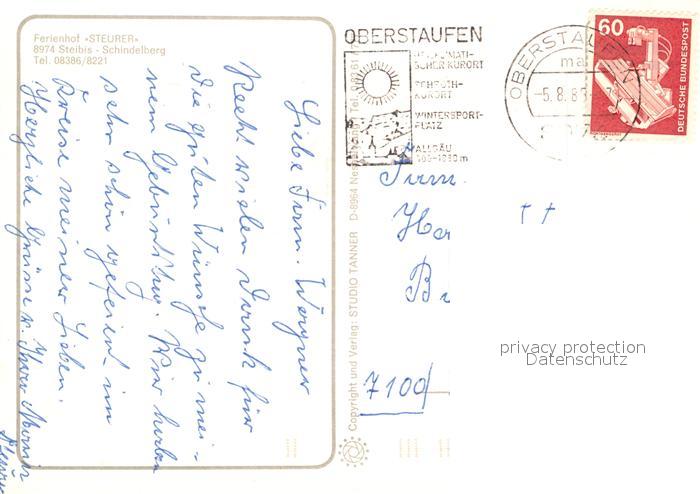 Ferienhof »STEURER«
8974 Steibis - Schindelberg
Tel. 08386/8221
Liebe Firm. Wergner
Recht vielen Dank für
die guten Wünsche zu mei-
nem Geburtstag. Wir haben
sehr schön gefeiert im
Kreise meiner Lieben.
Herzliche Grüsse v. Ihrer
OBERSTAUFEN
SCHROTH-
KURORT
WINTERSPORT-
PLATZ
ALLGÄU
OBERSTAUFEN
ma
-5.8.8
60
DEUTSCHE BUNDESPOST
Copyright und Verlag: STUDIO TANNER D-8964 Nes
Firm.
Her
Br
7100
privacy protection
Datenschutz